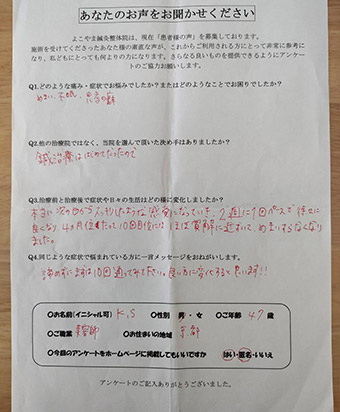 あなたのお声をお聞かせください
よこやま鍼灸整体院は、現在「患者様の声」を募集しております。
施術を受けてくださったあなた様の素直な声が、これからご利用される方にとって非常に参考に
なり、私どもにとっても何よりの力になります。さらなる良いものを提供できるようにアンケー
トのご協力お願いします。
Q1.どのような痛み・症状でお悩みでしたか?またはどのようなことでお困りでしたか?
めまい、不眠、
Q2.他の治療院ではなく、当院を選んで頂いた決め手はありましたか?
鍼治療ははじめてだったので
Q3.治療前と治療後で症状や日々の生活はどの様に変化しましたか?
本当に次の日からスッキリしたような感覚になっていき、2週に1回ペースで徐々に
良くなり4ヵ月位たって10回目位にはほぼ
めまいもなくなり
ました。
Q4.同じような症状で悩まれている方に一言メッセージをおねがいします。
諦めずにまずは10回通ってみて下さい。良い方に変化すると思います!!
○お名前(イニシャル可) K.S ○性別 男・女 ○ご年齢 47 歳
○ご職業 美容師 ○お住まいの地域 京都
○今回のアンケートをホームページに掲載してもいいですか はい・匿名・いいえ
アンケートのご記入ありがとうございました。